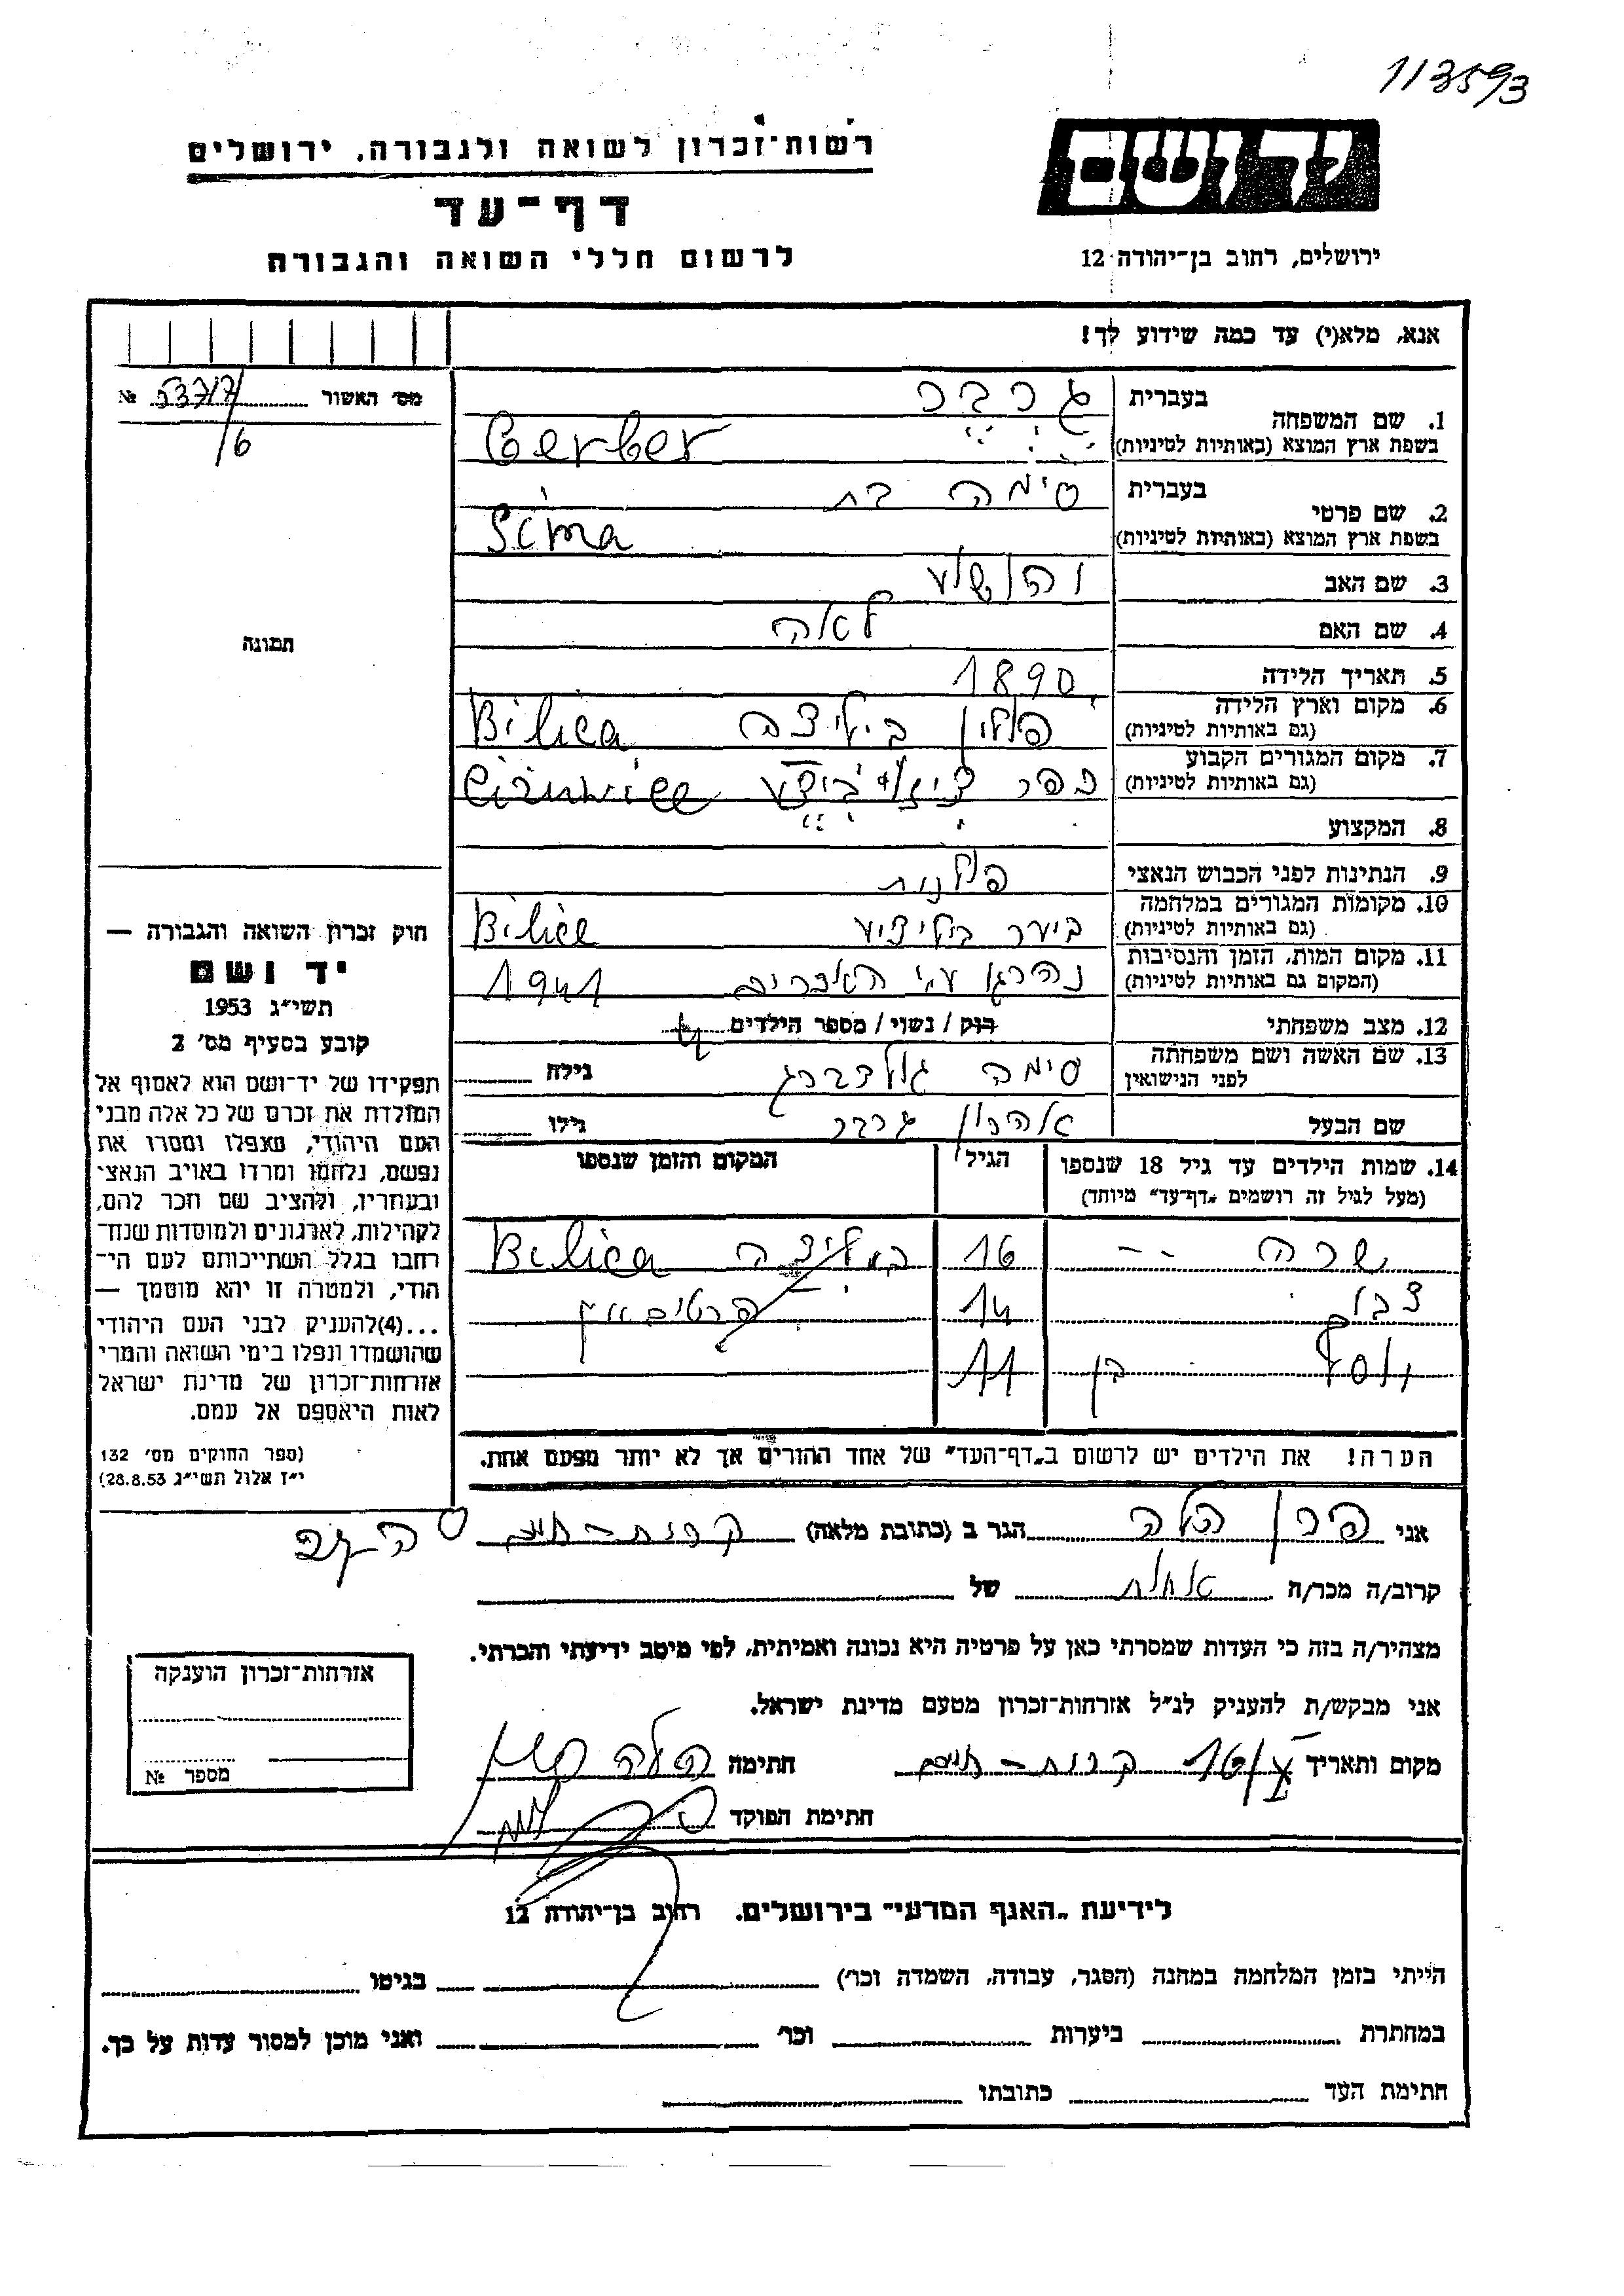 113593
יד ושם
רשות־זכרון לשואה ולגבורה, ירושלים
דף־עד
לרשום חללי השואה והגבורה
ירושלים, רחוב בן־יהודה 12
אנא, מלא(י) עד כמה שידוע לך!
מס׳ האשור 53717 №
/6
תמונה
חוק זכרון השואה והגבורה —
יד ושם
תשי״ג 1953
קובע בסעיף מס׳ 2
תפקידו של יד־ושם הוא לאסוף אל
המולדת את זכרם של כל אלה מבני
העם היהודי, שנפלו ומסרו את
נפשם, נלחמו ומרדו באויב הנאצי
ובעוזריו, ולהציב שם וזכר להם,
לקהילות, לארגונים ולמוסדות שנח־
רבו בגלל השתייכותם לעם הי־
הודי, ולמטרה זו יהא מוסמך —
...(4) להעניק לבני העם היהודי
שהושמדו ונפלו בימי השואה והמרי
אזרחות־זכרון של מדינת ישראל
לאות היאספם אל עמם.
(ספר החוקים מס׳ 132
י״ז אלול תשי״ג 28.8.53)
1. שם המשפחה
בעברית גרבר
בשפת ארץ המוצא (באותיות לטיניות) Gerber
2. שם פרטי
בעברית סימה בת
בשפת ארץ המוצא (באותיות לטיניות) Sima
3. שם האב יהושע
4. שם האם לאה
5. תאריך הלידה 1890
6. מקום וארץ הלידה
(גם באותיות לטיניות) פולין ביליצה Bilica
7. מקום המגורים הקבוע
(גם באותיות לטיניות) כפר
8. המקצוע
9. הנתינות לפני הכבוש הנאצי פולנית
10. מקומות המגורים במלחמה
(גם באותיות לטיניות) ביער ביליציע Bilice
11. מקום המות, הזמן והנסיבות
(המקום גם באותיות לטיניות) נהרגו ע״י האכרים 1941
12. מצב משפחתי רוק / נשוי / מספר הילדים 4
13. שם האשה ושם משפחתה
לפני הנישואין סימה גולדברג גילה
שם הבעל אהרון גרבר גילו
14. שמות הילדים עד גיל 18 שנספו הגיל המקום והזמן שנספו
(מעל לגיל זה רושמים „דף־עד״ מיוחד)
שרה -- 16 בילייצה Bilica
14
יוסף בן 11
הערה! את הילדים יש לרשום ב„דף־העד״ של אחד ההורים אך לא יותר מפעם אחת.
אני הגר ב (כתובת מלאה) קרית-חיים
קרוב/ה מכר/ה של
מצהיר/ה בזה כי העדות שמסרתי כאן על פרטיה היא נכונה ואמיתית, לפי מיטב ידיעתי והכרתי.
אני מבקש/ת להעניק לנ״ל אזרחות־זכרון מטעם מדינת ישראל.
מקום ותאריך קרית-חיים חתימה
חתימת הפוקד
אזרחות־זכרון הוענקה
מספר №
לידיעת „האגף המדעי״ בירושלים. רחוב בן־יהודה 12
הייתי בזמן המלחמה במחנה (הסגר, עבודה, השמדה וכו׳) בגיטו
במחתרת ביערות וכו׳ ואני מוכן למסור עדות על כך.
חתימת העד כתובתו